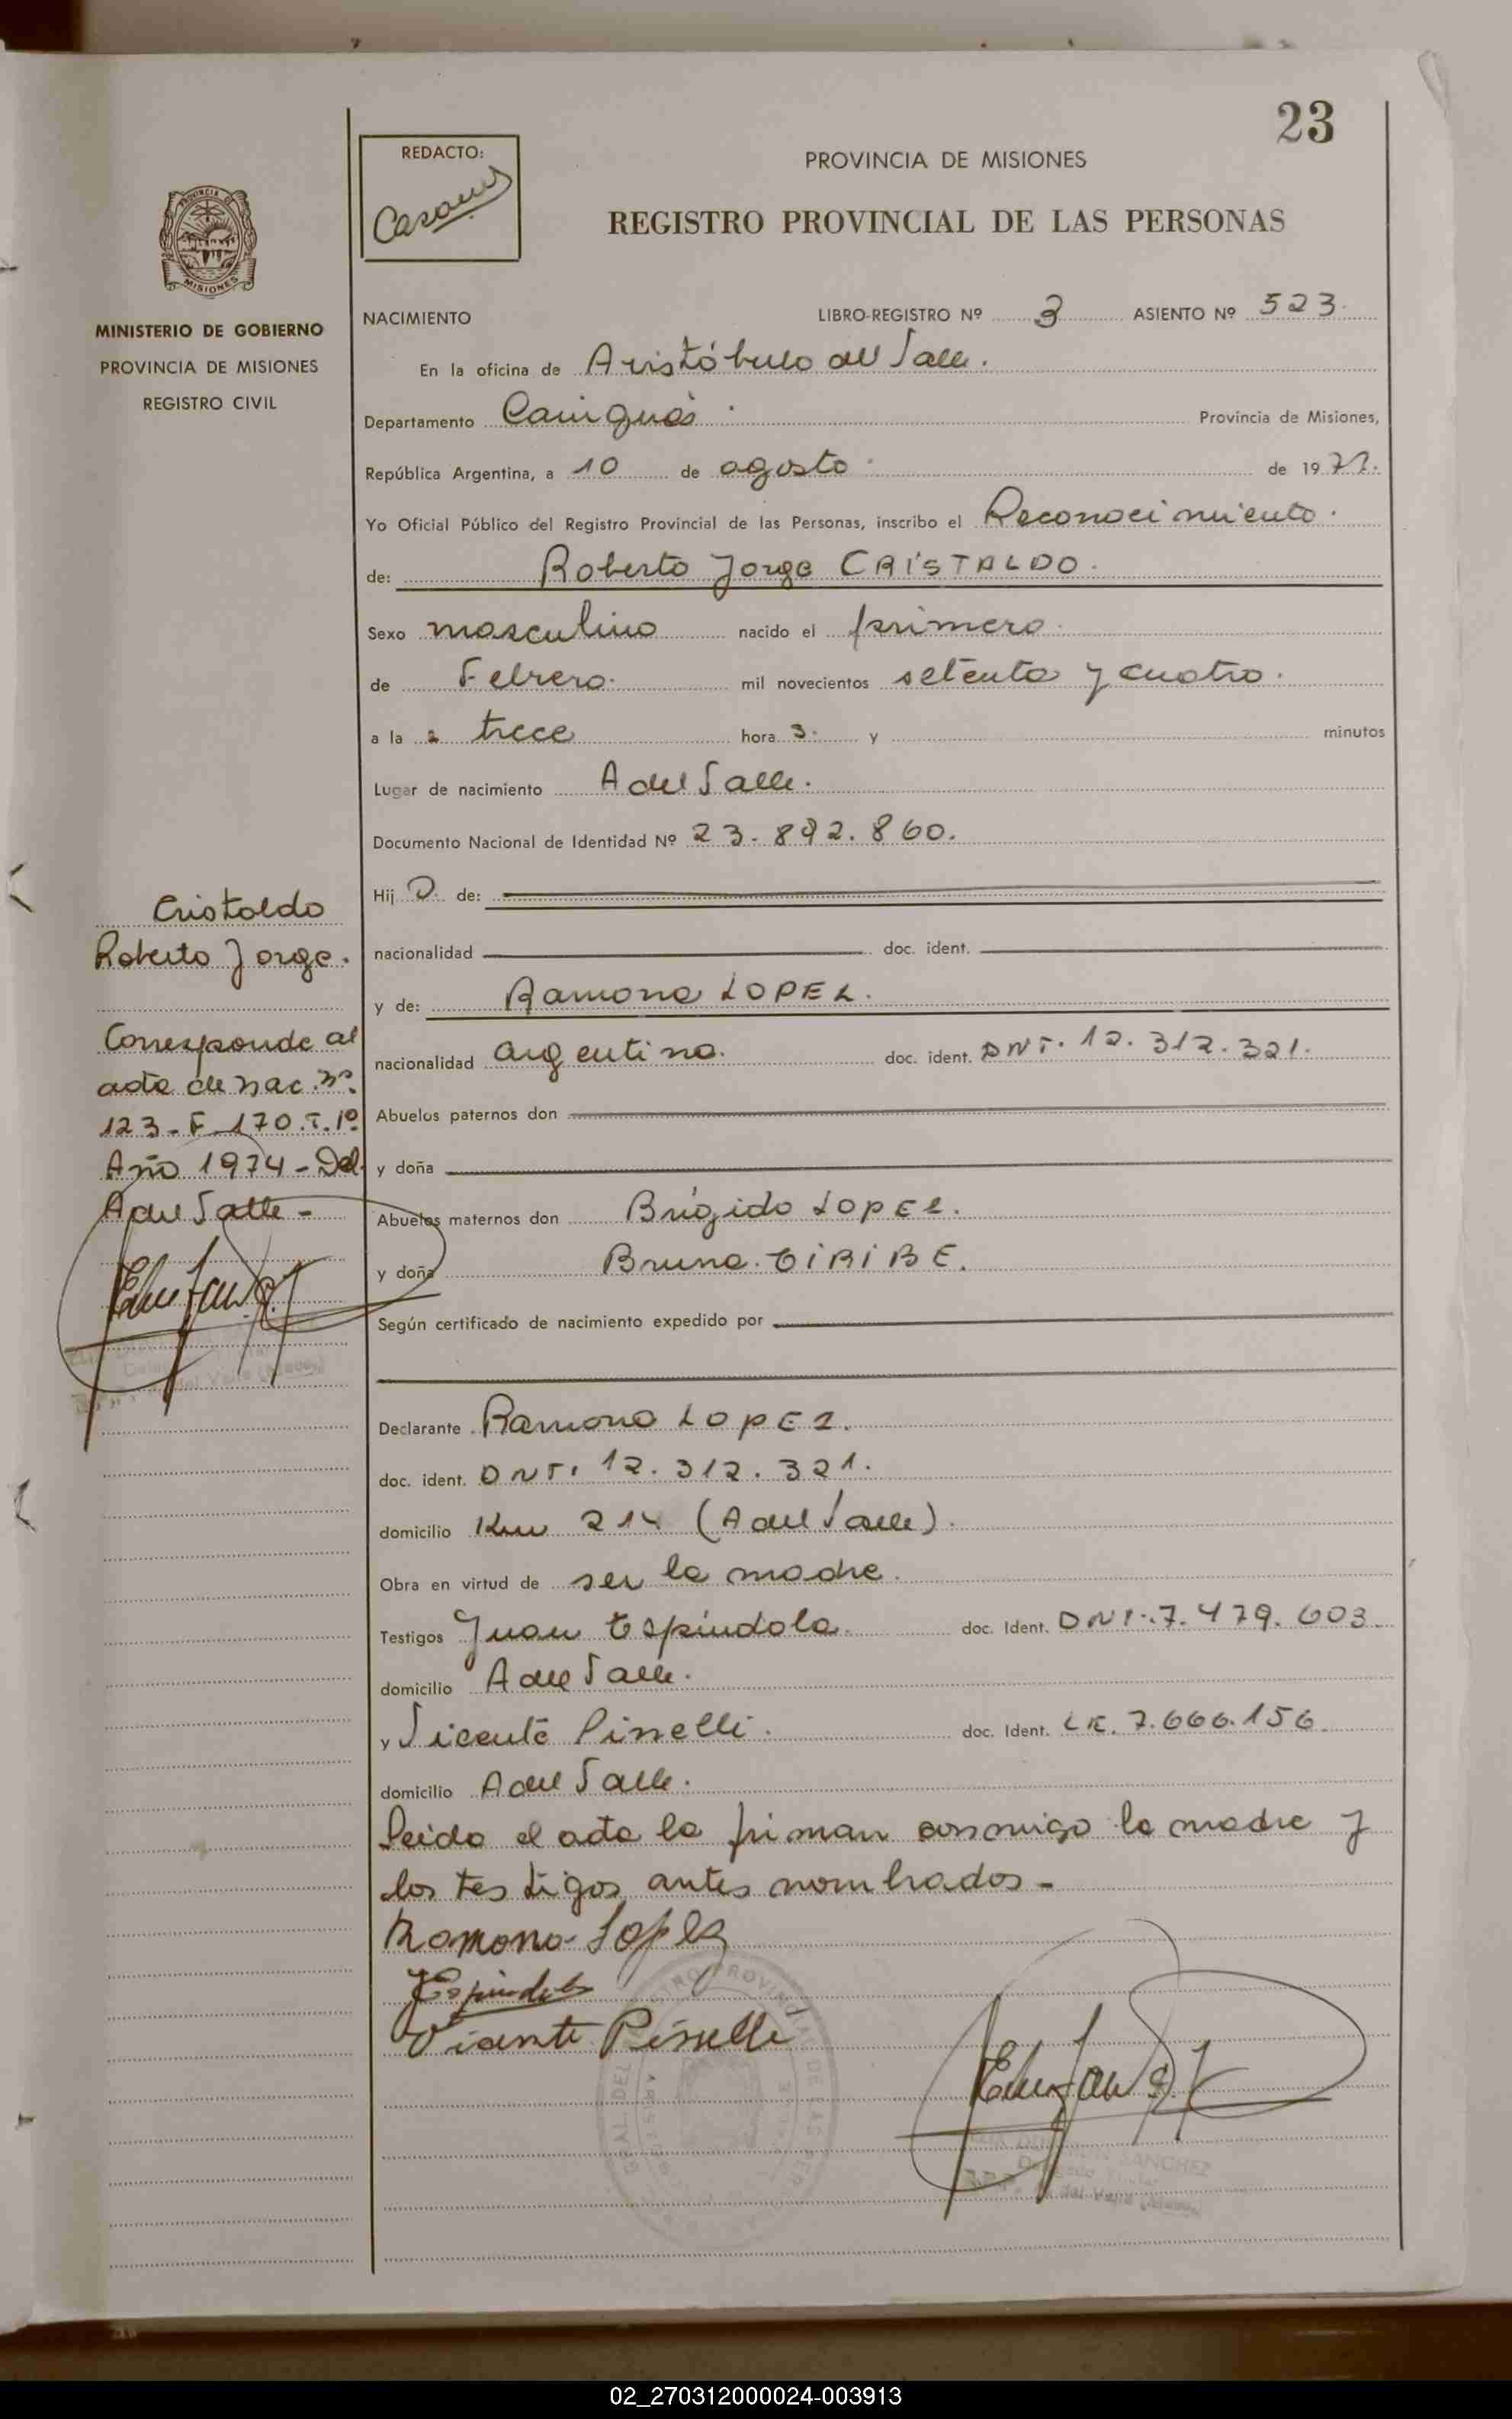 23
REDACTO:
PROVINCIA DE MISIONES
REGISTRO PROVINCIAL DE LAS PERSONAS
MISIONES
MINISTERIO DE GOBIERNO
PROVINCIA DE MISIONES
REGISTRO CIVIL
NACIMIENTO LIBRO-REGISTRO Nº 3 ASIENTO Nº 523.
En la oficina de Aristóbulo del Valle.
Departamento Cainguás. Provincia de Misiones,
República Argentina, a 10 de agosto. de 19
Yo Oficial Público del Registro Provincial de las Personas, inscribo el Reconocimiento.
de: Roberto Jorge CRISTALDO.
Sexo masculino nacido el primero.
de Febrero. mil novecientos setenta y cuatro.
a la s trece hora s. y minutos
Lugar de nacimiento A del Valle.
Documento Nacional de Identidad Nº 23.892.860.
Hij o. de:
nacionalidad doc. ident.
y de: Ramona LOPEZ.
nacionalidad argentina. doc. ident. DNI. 12.312.321.
Abuelos paternos don
y doña
Abuelos maternos don Brígido LOPEZ.
y doña Bruna.
Según certificado de nacimiento expedido por
Declarante Ramona LOPEZ.
doc. ident. DNI. 12.312.321.
domicilio Km 214 (A del Valle).
Obra en virtud de ser la madre.
Testigos Juan Espíndola. doc. Ident. DNI. 7.479.603
domicilio A del Valle.
y Vicente Pisselli. doc. Ident. L.E. 7.666.156.
domicilio A del Valle.
Leida el acta la firman conmigo la madre y
los testigos antes nombrados.-
Ramona Lopez
J Espindola
Vicente Pisselli
SANCHEZ
Cristaldo
Roberto Jorge.
Corresponde al
acta de nac. nº
123 - F - 170. T. 1º
Año 1974 - Del.
A del Valle -
02_270312000024-003913